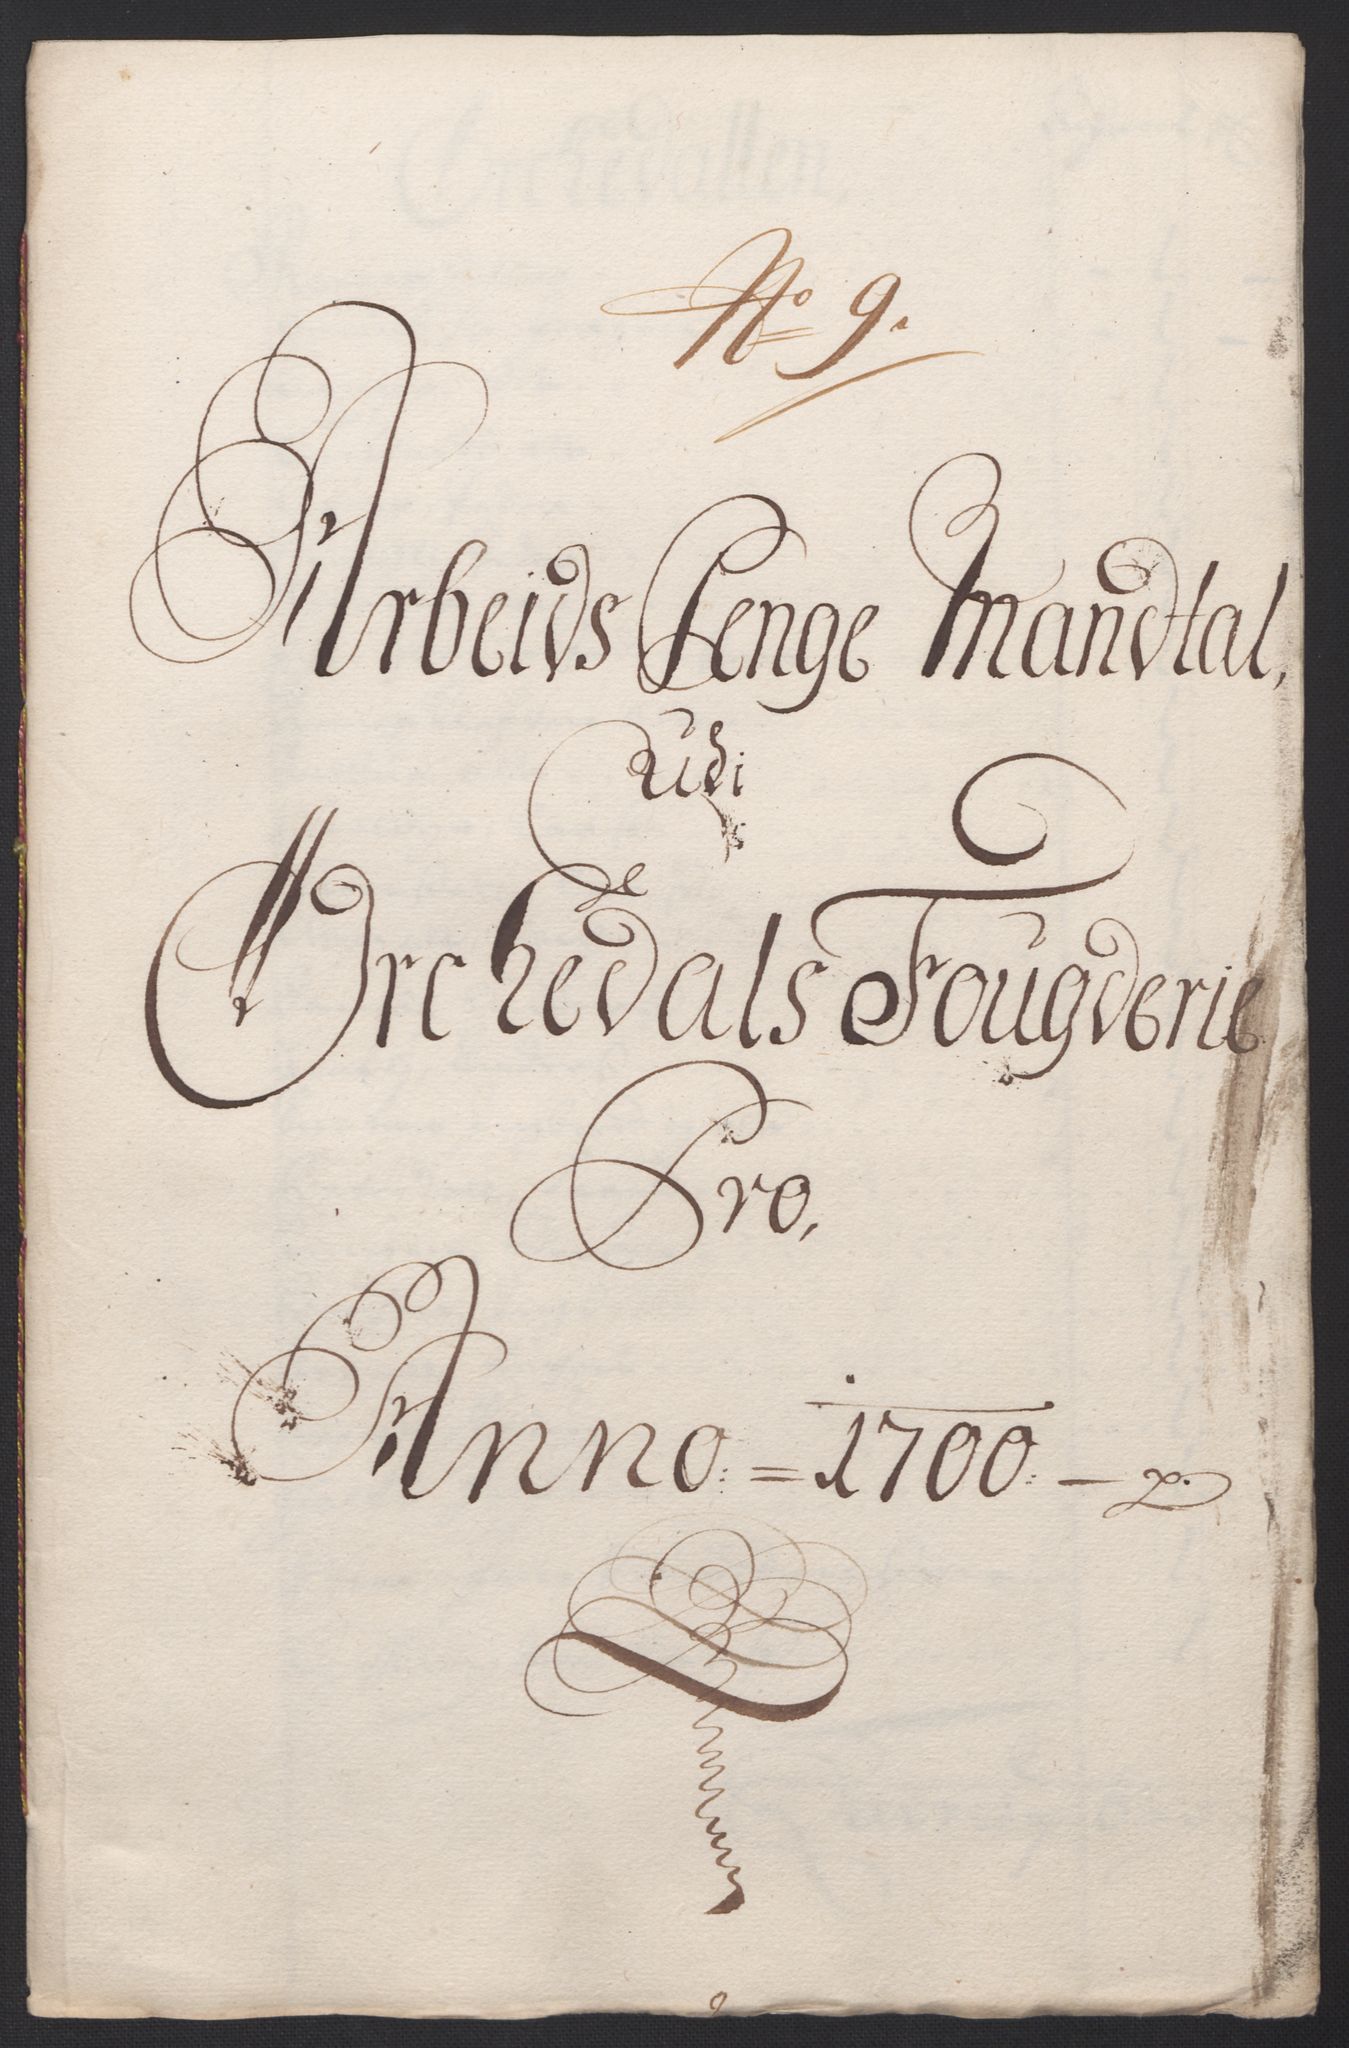 No 9.
Arbeids Penge Mandtal,
Udi
Orckedals Fougderie
Pro,
Anno = 1700 –